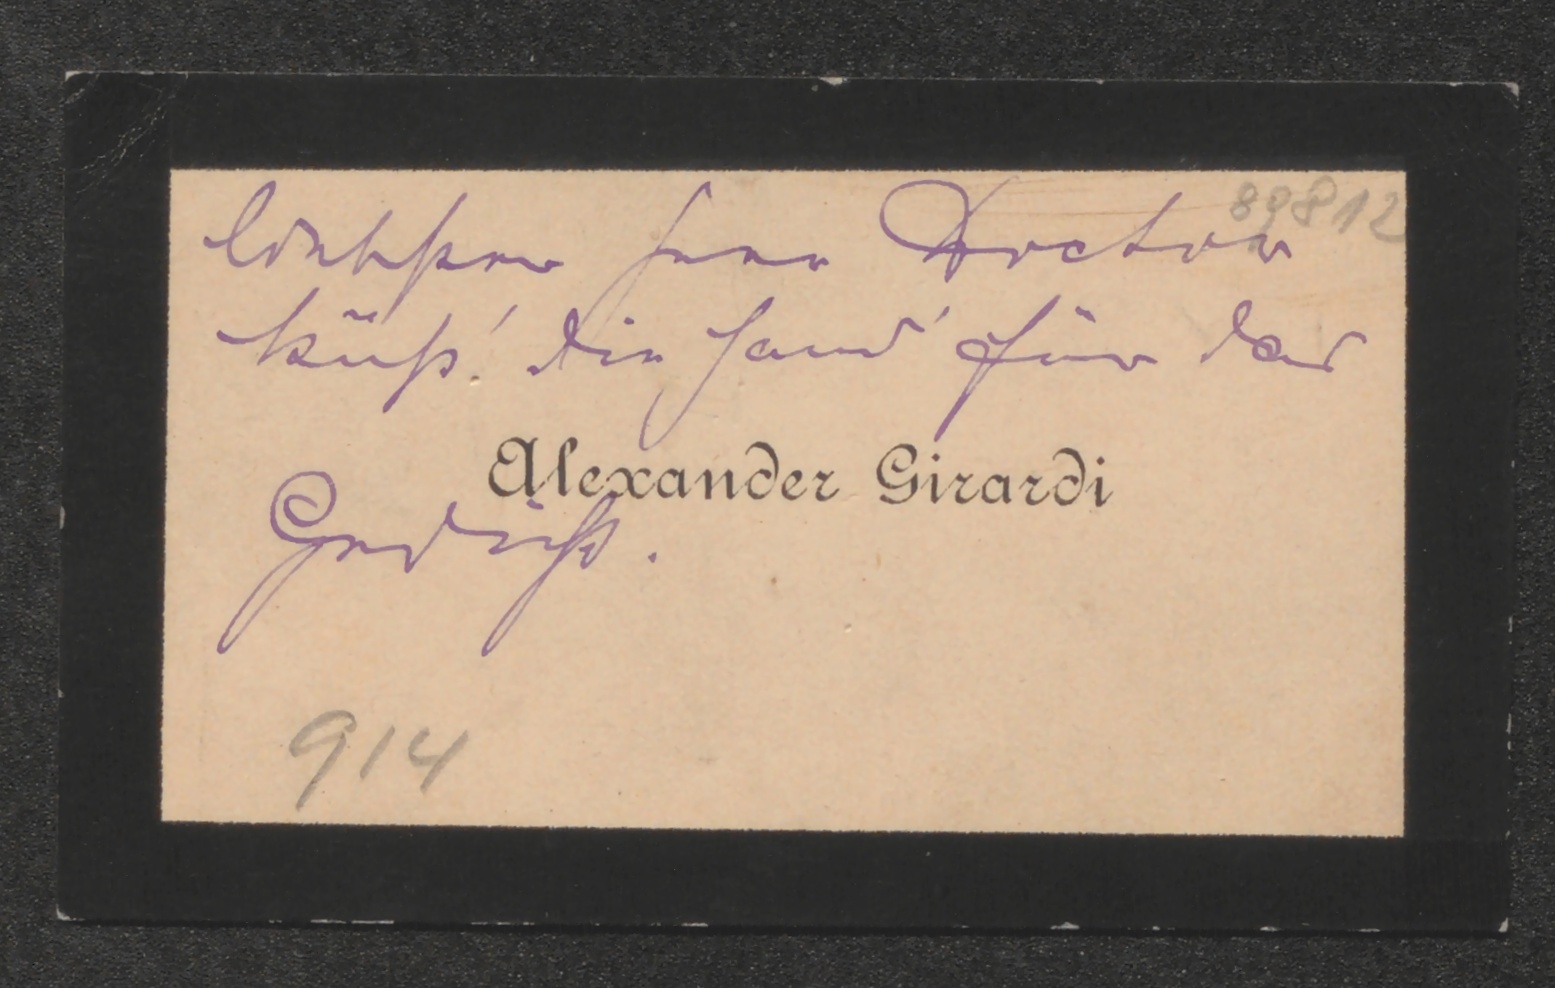 89812
liebster Herr Doctor
küß' die Hand' für das
Alexander Girardi
Gedicht.
914